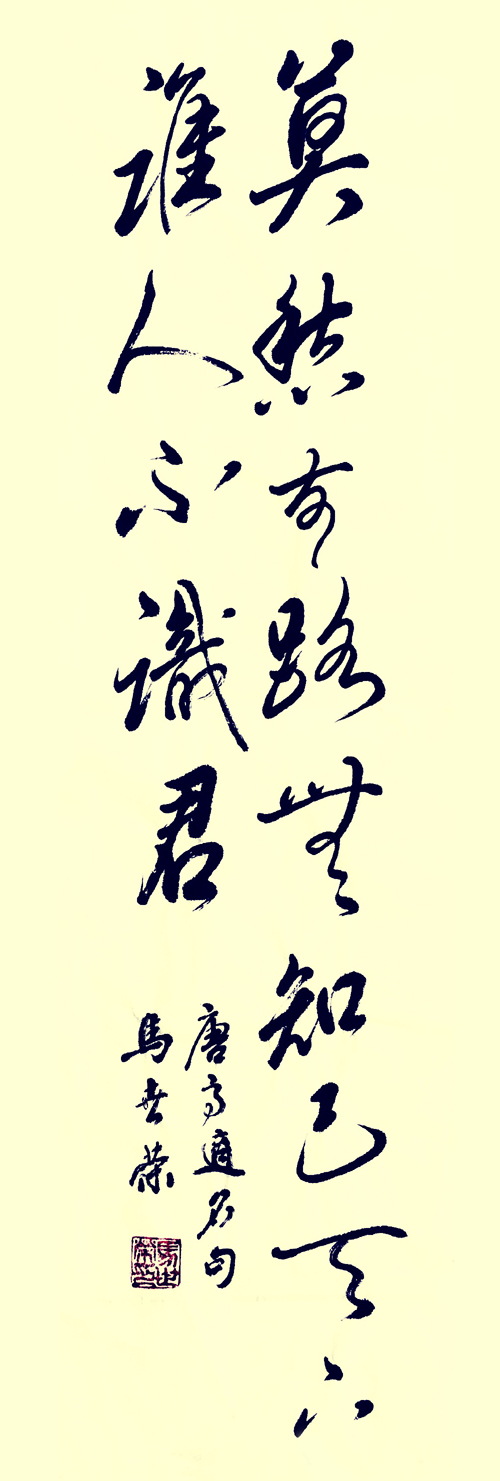 莫愁前路無知己天下
誰人不識君
唐高適名句
馬世榮
馬世榮印